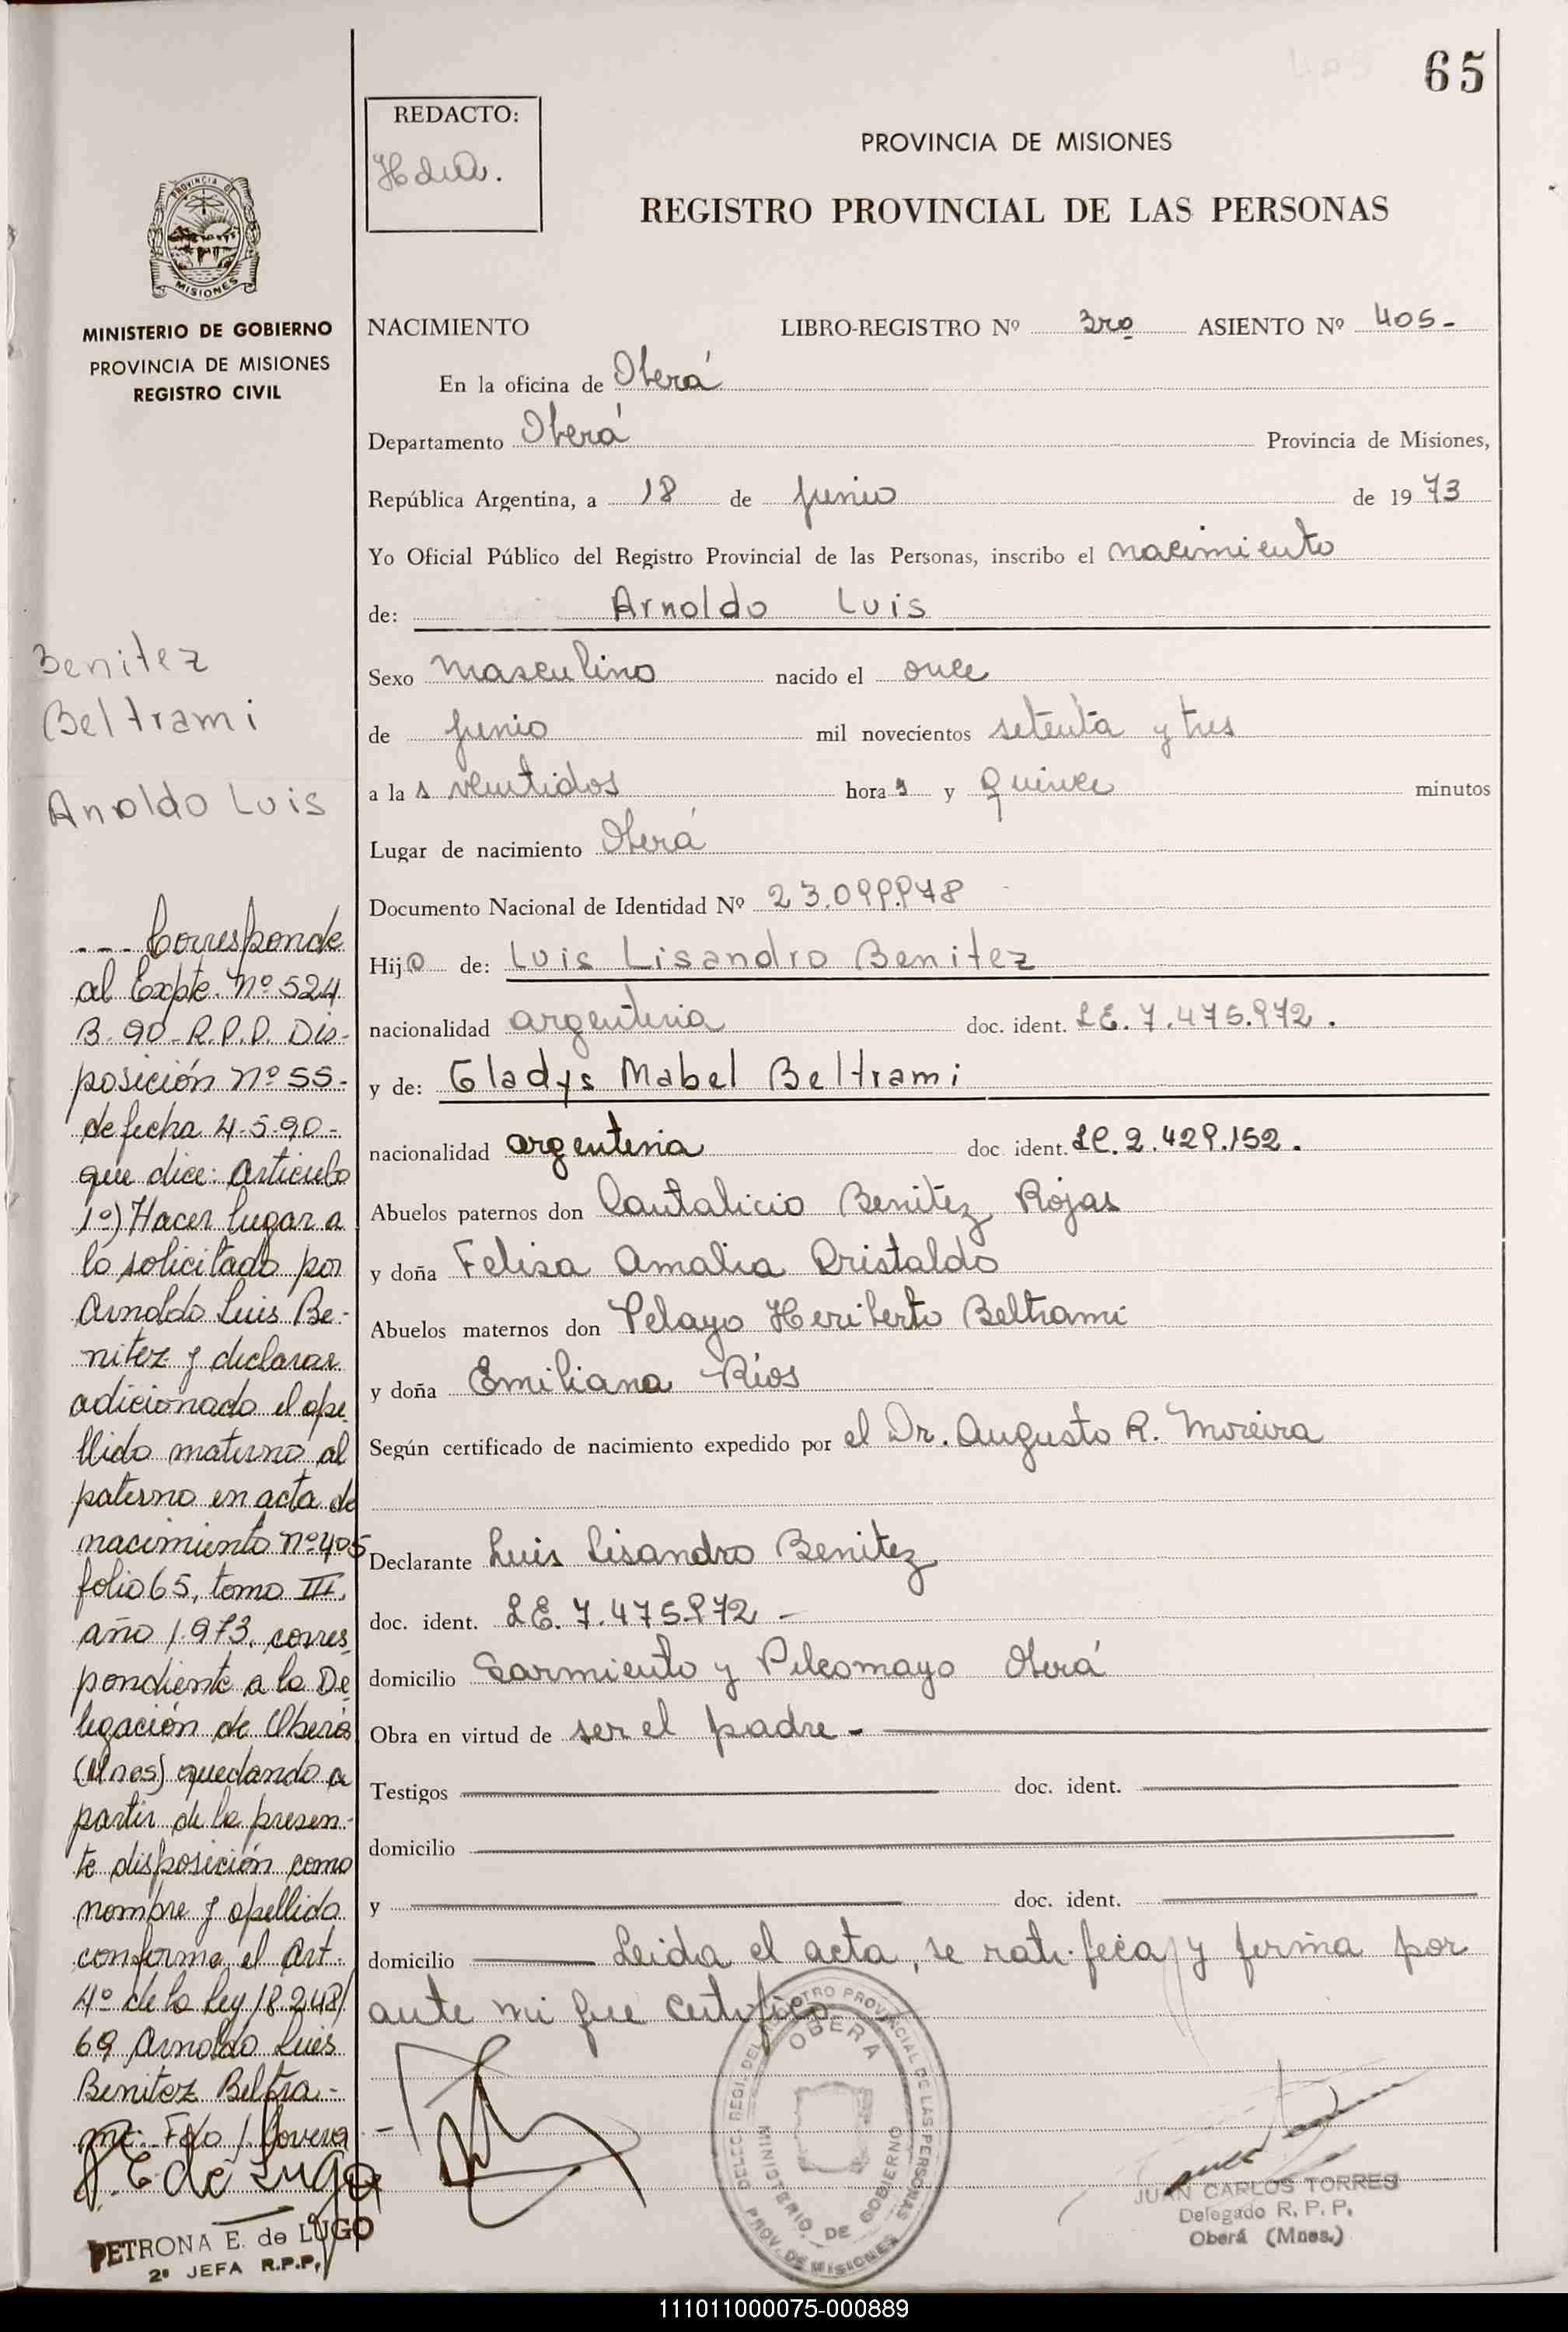 65
REDACTO:
PROVINCIA DE MISIONES
REGISTRO PROVINCIAL DE LAS PERSONAS
PROVINCIA DE
MISIONES
MINISTERIO DE GOBIERNO
PROVINCIA DE MISIONES
REGISTRO CIVIL
Benitez
Beltrami
Arnoldo Luis
... Corresponde
al Expte. Nº 524
B-90-R.P.P. Dis-
posición Nº 55-
de fecha 4-5-90-
que dice: Artículo
1º) Hacer lugar a
lo solicitado por
Arnoldo Luis Be-
nitez y declarar
adicionado el ape
llido materno al
paterno en acta de
nacimiento nº 405
folio 65, tomo III,
año 1.973, corres
pondiente a la De
legación de Oberá
(Mnes) quedando a
partir de la presen-
te disposición como
nombre y apellido
conforme el Art.
4º de la ley 18.248/
69 Arnoldo Luis
Benitez Beltra-
mi. Fdo /
P. E. de Lugo
PETRONA E. de LUGO
2ª JEFA R.P.P.
NACIMIENTO LIBRO-REGISTRO Nº 3ro ASIENTO Nº 405-
En la oficina de Oberá
Departamento Oberá Provincia de Misiones,
República Argentina, a 18 de junio de 1973
Yo Oficial Público del Registro Provincial de las Personas, inscribo el nacimiento
de: Arnoldo Luis
Sexo masculino nacido el once
de junio mil novecientos setenta y tres
a las veintidos horas y quince minutos
Lugar de nacimiento Oberá
Documento Nacional de Identidad Nº 23.099.978
Hijo de: Luis Lisandro Benitez
nacionalidad argentina doc. ident. LE. 7.475.972.
y de: Gladys Mabel Beltrami
nacionalidad argentina doc. ident. LC. 2.429.152.
Abuelos paternos don Cantalicio Benitez Rojas
y doña Felisa Amalia Cristaldo
Abuelos maternos don Pelayo Heriberto Beltrami
y doña Emiliana Rios
Según certificado de nacimiento expedido por el Dr. Augusto R. Moreira
Declarante Luis Lisandro Benitez
doc. ident. LE. 7.475.972 -
domicilio Sarmiento y Pilcomayo Oberá
Obra en virtud de ser el padre -
Testigos doc. ident.
domicilio
y doc. ident.
domicilio Leida el acta, se ratifica y firma por
ante mi que certifico
DELEG. REGI. DEL REGISTRO PROVINCIAL DE LAS PERSONAS
OBERA
MINISTERIO DE GOBIERNO
PROV. DE MISIONES
JUAN CARLOS TORRES
Delegado R. P. P.
Oberá (Mnes.)
111011000075-000889